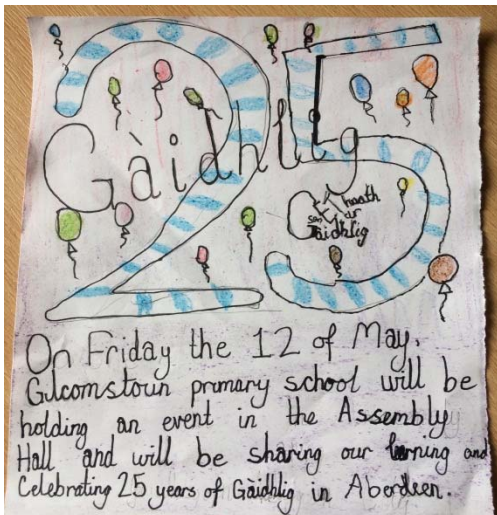 25
Gàidhlig
Gàidhlig
On Friday the 12 of May.
Gilcomstoun primary school will be
holding an event in the Assembly
Hall and will be sharing our lerning and
Celebrating 25 years of Gàidhlig in Aberdeen.